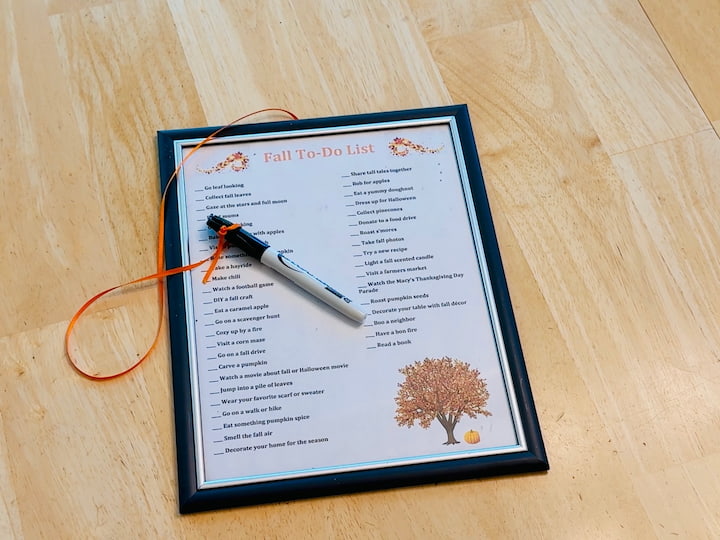 Fall To-Do List
___ Go leaf looking
___ Collect fall leaves
___ Gaze at the stars and full moon
mums
with apples
___ Make chili
___ Watch a football game
___ DIY a fall craft
___ Eat a caramel apple
___ Go on a scavenger hunt
___ Cozy up by a fire
___ Visit a corn maze
___ Go on a fall drive
___ Carve a pumpkin
___ Watch a movie about fall or Halloween movie
___ Jump into a pile of leaves
___ Wear your favorite scarf or sweater
___ Go on a walk or hike
___ Eat something pumpkin spice
___ Smell the fall air
___ Decorate your home for the season
___ Share tall tales together
___ Bob for apples
___ Eat a yummy doughnut
___ Dress up for Halloween
___ Collect pinecones
___ Donate to a food drive
___ Roast s'mores
___ Take fall photos
___ Try a new recipe
___ Light a fall scented candle
___ Visit a farmers market
___ Watch the Macy's Thanksgiving Day
Parade
___ Roast pumpkin seeds
___ Decorate your table with fall décor
___ Boo a neighbor
___ Have a bon fire
___ Read a book